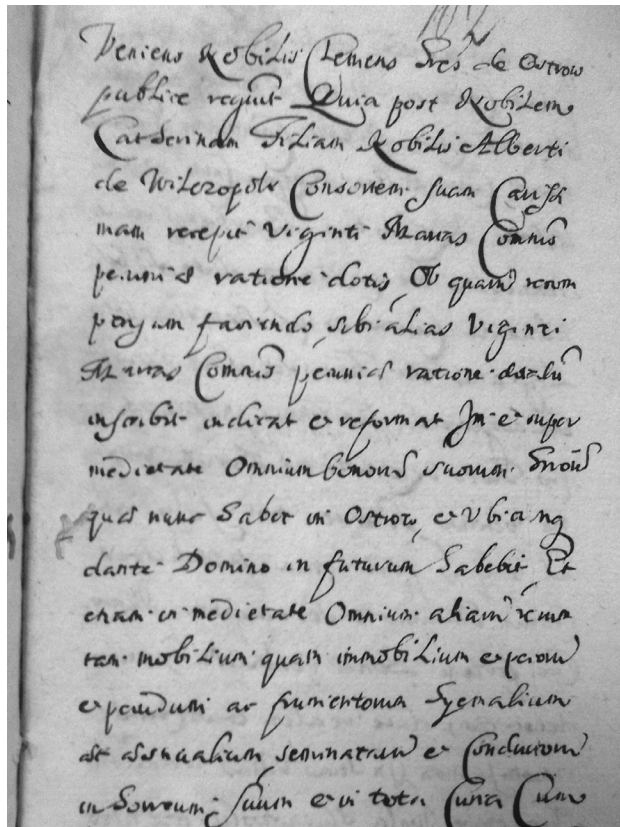 Veniens Nobilis Clemens hrēs de Ostrow
publice reg̃uit Quia post Nobilem
Catherinam Filiam Nobilis Alberti
de Wilczopole Consortem suam Cariss
mam recepit Viginti Marcas Com̃nis
pecunię ratione dotis Ob quam
faciendo sibi alias Viginti
Marcas Com̃nis pecunię ratione
inscribit indicat et reformat In et super
medietate Omnium bonorũ suorum
quę nunc habet in Ostrow, et Vbicunq
dante Domino in futurum habebit Et
etiam in medietate Omnium aliarũ rerum
tam mobilium quam immobilium et pecorũ
et pecudum ac frumentorum hyemalium
et seminatarũ et
in horreum et in tota Curia Cum